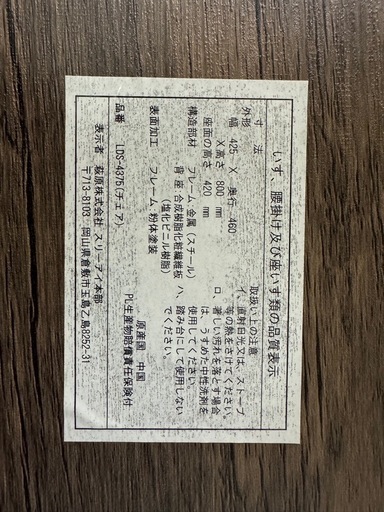 いす、腰掛け及び座いす類の品質表示
寸　法
外形
幅　425　X　奥行　460
X高さ　800　mm
座面の高さ　420　mm
構造部材　フレーム・金属（スチール）
背・座　合成樹脂化粧繊維板
（塩化ビニル樹脂）
表面加工　フレーム、粉体塗装
取扱い上の注意
イ、直射日光又は、ストーブ
等の熱をさけてください。
ロ、著しい汚れを落とす場合
は、うすめた中性洗剤を
使用してください。
ハ、踏み台にして使用しない
でください。
原産国　中国
品番　LDS-4375(チェア)
PL生産物賠償責任保険付
表示者　萩原株式会社　スリーアイ本部
〒713-8103　岡山県倉敷市玉島乙島8252-31